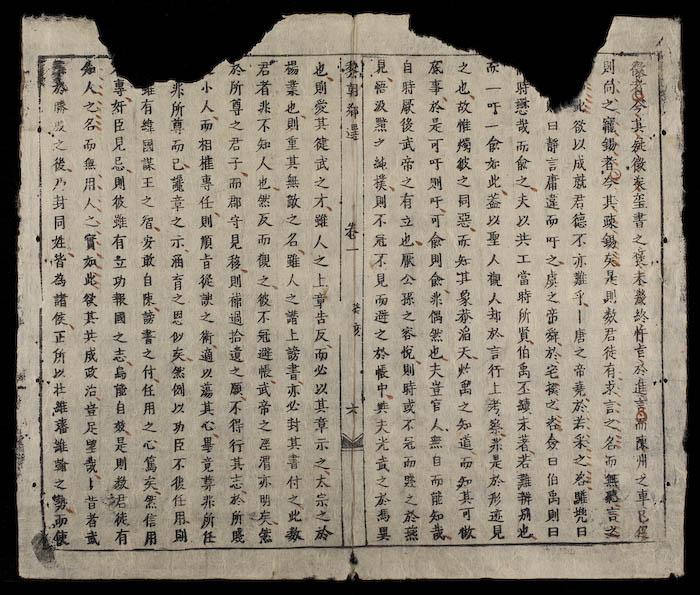 今其徒徵矣璽書之褒未幾終忤言於進言而陳州之車已
則向之寵錫者今其疎錫矣是則數君徒有求言之名而無聽言之
此欲以成就君德不亦難乎唐之帝堯於若采之咨驩兜曰
曰靜言庸違而吁之虞之帝舜於宅揆之咨僉曰伯禹則曰
時懋哉而俞之夫以共工當時所賢伯禹丕績未著若難辨別也
而一吁一俞如此蓋以聖人觀人却於言行上考察非是於形迹見
之也故惟燭彼之同惡而知其象恭滔天灼禹之知道而知其可做
底事於是可吁則吁可俞則俞非偶然也夫豈官人無自而能知哉
自時厥後武帝之有立也厭公孫之容悅則時或不冠而與之於燕
見悟汲黯之純撲則不冠不見而避之於帳中與夫光武之於馮異
黎朝鄉選 卷一 癸亥 六
也則愛其健武之才雖人之上章告反而必以其章示之太宗之於
楊業也則重其無敵之名雖人之譖上謗書亦必封其書付之此數
君者非不知人也然反而觀之彼不冠避帳武帝之涇渭亦明矣然
於所尊之君子而郡守見移則補過拾遺之願不得行其志於所
小人而相權專任則順旨從諛之術適以蕩其心畢竟尊非所任
非所尊而已讒章之示涵育之恩似矣然例以功臣不復任用則
雖有緯國謀王之智安敢自陳謗書之付任用之心篤矣然信用
專奸臣見忌則彼雖有立功報國之志烏能自效是則數君徒有
知人之名而無用人之實如此欲其共成政治豈足望哉昔者武
於勝殷之後乃封同姓皆為諸侯正所以壯維藩維翰之勢而使